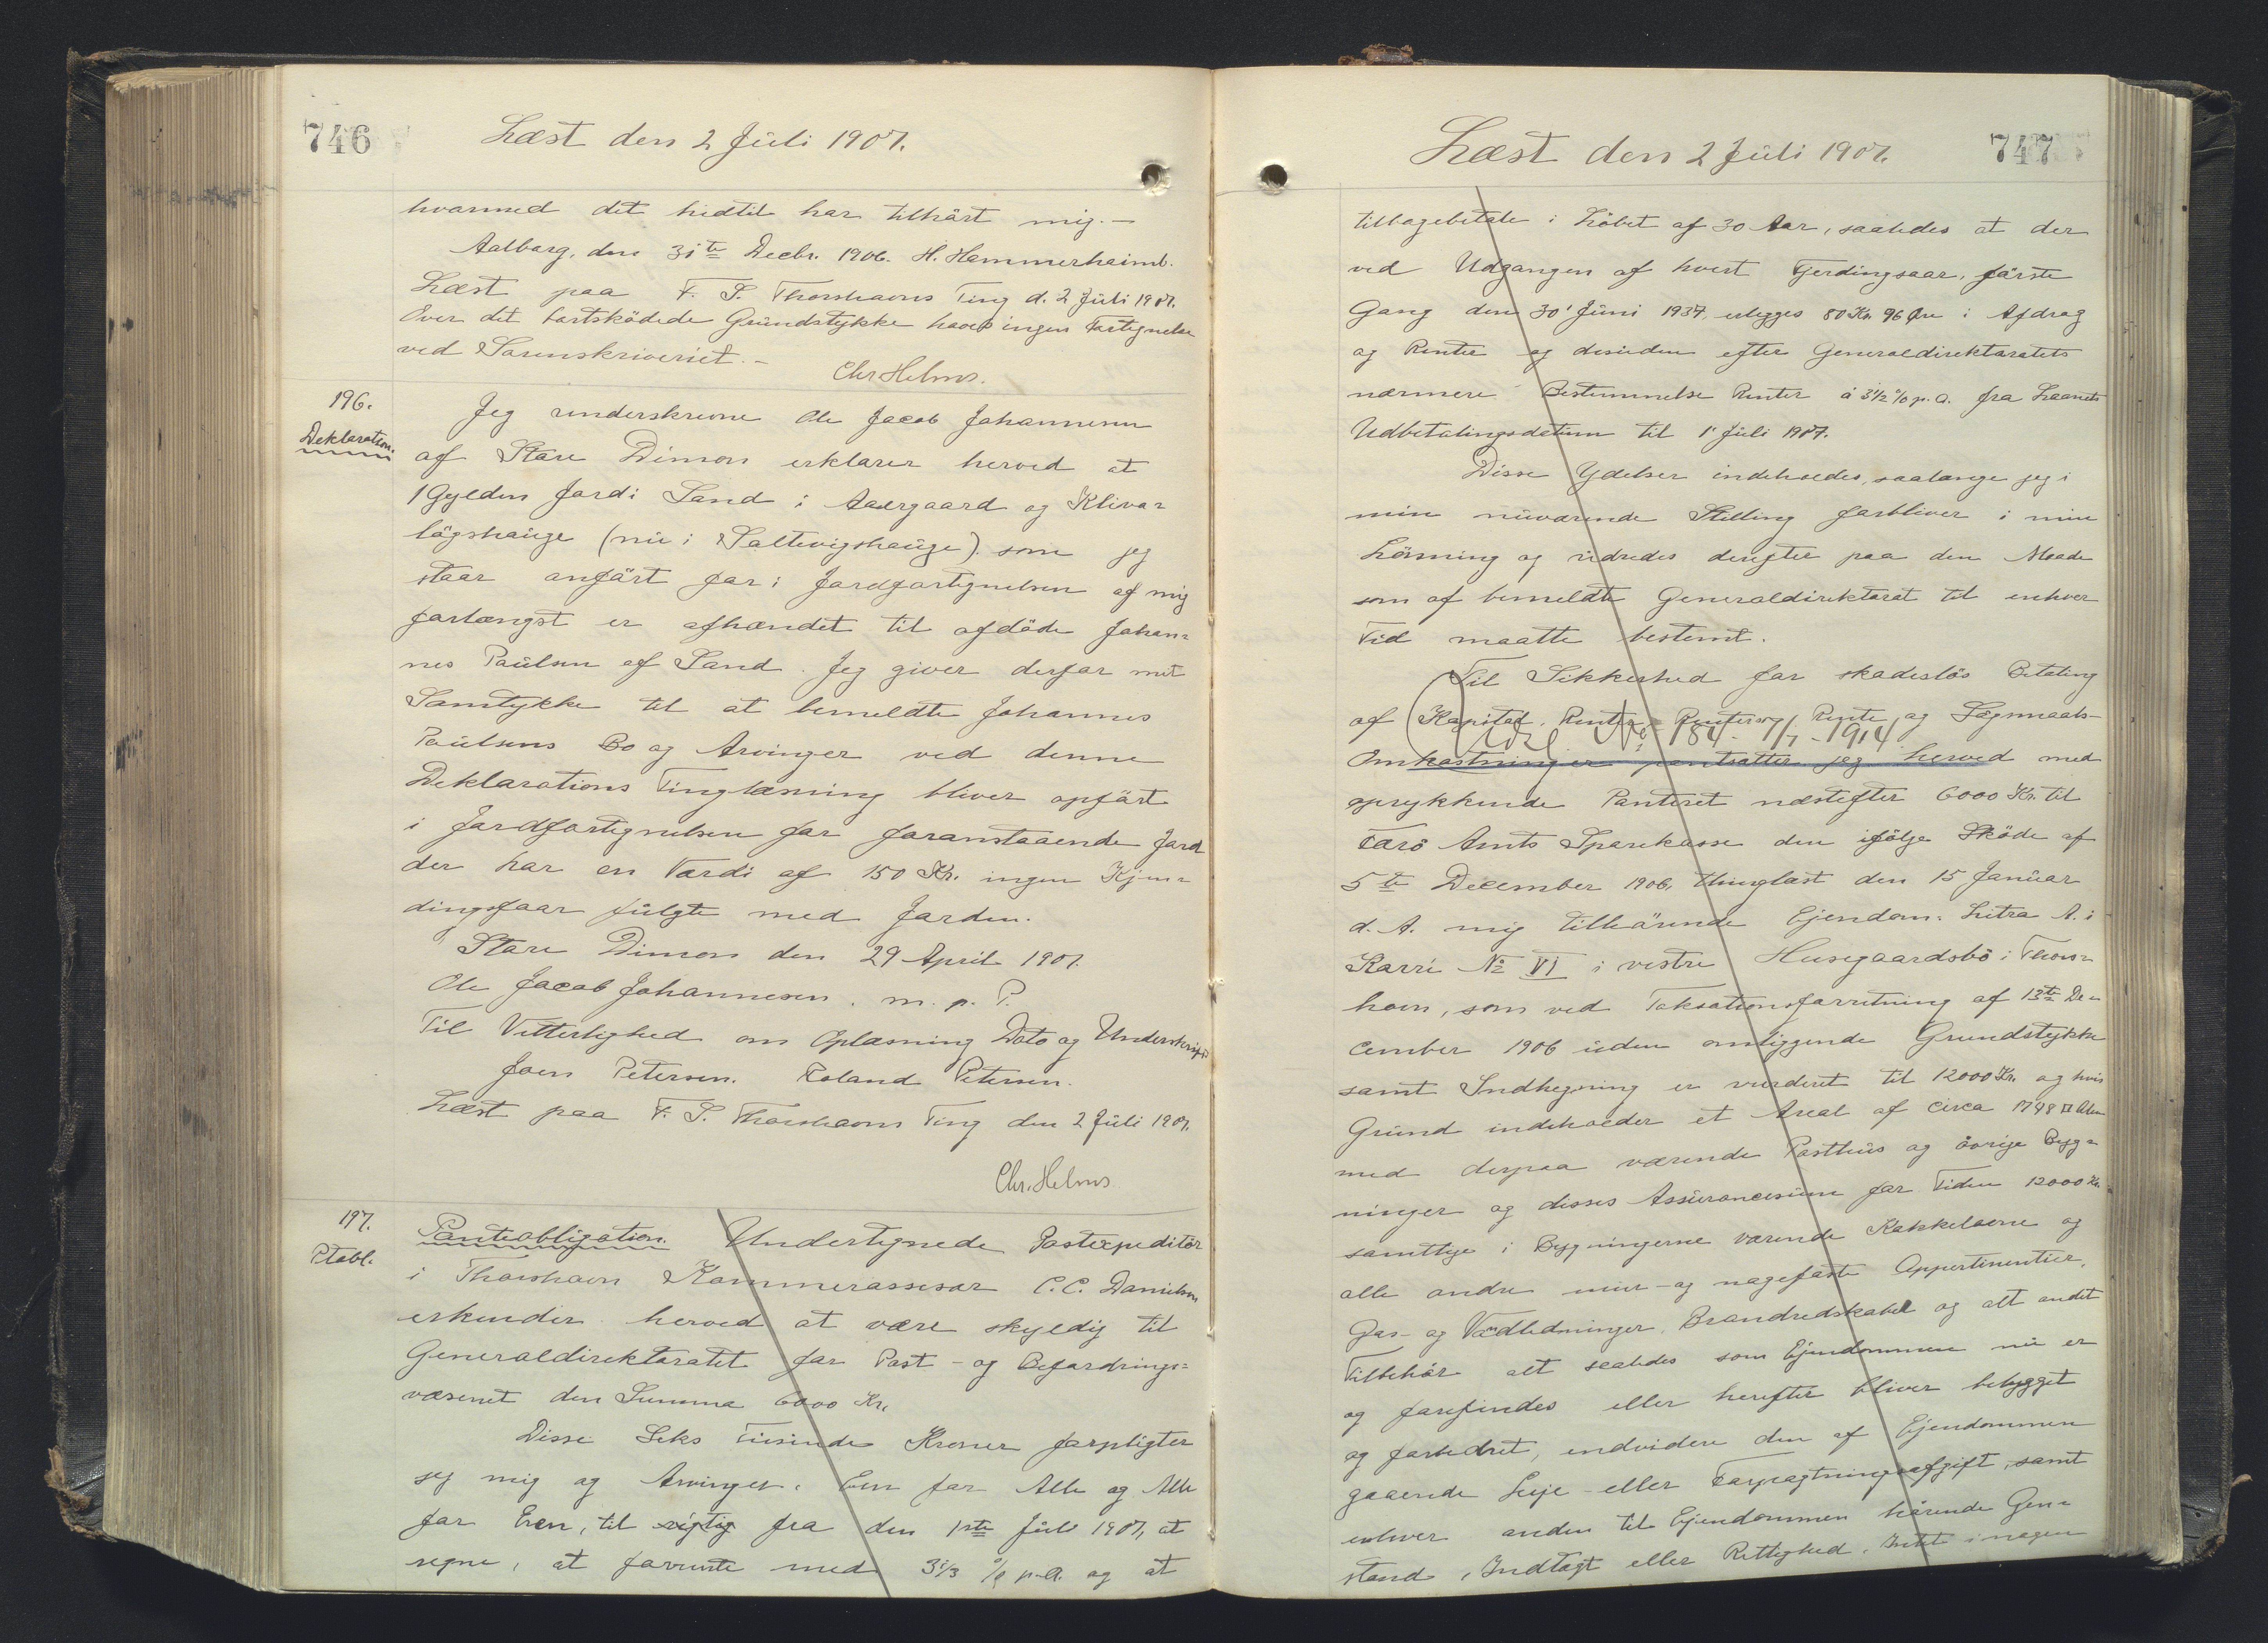 746
Læst den 2 Juli 1907.
hvormed det hidtil har tilhört mig.-
Aalborg, den 31te Decbr. 1906. H. Hammerhaimb.
Læst paa F. S. Thorshavns Ting d. 2 Juli 1907.
Over det bortsködede Grundstykke haves ingen Fortegnelse
ved Sorenskriveriet.-
Chr. Helms.
196.
Deklaration.
Jeg underskrevne Ole Jacob Johannesen
af Store Dimon erklærer herved at
1 Gylden Jord i Sand i Aaergaard og Kliva=
lögshauge (nu i Saltevigshauge) som jeg
staar anfört for i Jordfortegnelsen af mig
forlængst er afhændet til afdöde Johan=
nes Poulsen af Sand. Jeg giver derfor mit
Samtykke til at bemeldte Johannes
Poulsens Bo og Arvinger ved denne
Deklarations Tinglæsning bliver opfört
i Jordfortegnelsen for foranstaaende Jord
der har en Værdi af 150 Kr. ingen Kjen=
dingsfaar fulgte med Jorden.
Store Dimon den 29 April 1907.
Ole Jacob Johannesen. m. p. P.
Til Vitterlighed om Oplæsning Dato og Underskrift
Joen Petersen. Roland Petersen.
Læst paa F. S. Thorshavns Ting den 2 Juli 1907.
Chr. Helms
197.
Ptobl.
Panteobligation. Undertegnede Postexpeditör
i Thorshavn Kammerassessor C.C. Danielsen
erkender herved at være skyldig til
Generaldirektoratet for Post- og Befordrings=
væsenet den Summa 6000 Kr.
Disse Seks Tusinde Kroner forpligter
jeg mig og Arvinger, Een for Alle og Alle
for Een, til rigtig fra den 1ste Juli 1907, at
regne, at forrente med 3 1/3 % p.a. og at
Læst den 2 Juli 1907.
747
tilbagebetale i Löbet af 30 Aar, saaledes at der
ved Udgangen af hvert Fjerdingsaar, förste
Gang den 30' Juni 1937, erlægges 80 Kr. 96 Öre i Afdrag
og Rente og desuden efter Generaldirektoratets
nærmere Bestemmelse Renter à 3 1/2 % p.a. fra Laanets
Udbetalingsdatum til 1' Juli 1907.
Disse Ydelser indeholdes, saalænge jeg i
min nuværende Stilling forbliver i min
Lönning og udredes derefter paa den Maade
som af bemeldte Generaldirektorat til enhver
Tid maatte bestemt.
Til Sikkerhed for skadeslös Betaling
af Kapital, Renter, Renters Rente og Sögsmaals-
Udsl No 184 - 1/7 - 1914
Omkostninger pantsætter jeg herved med
oprykkende Panteret næstefter 6000 Kr. til
Færö Amts Sparekasse den ifölge Sköde af
5te December 1906, thinglæst den 15 Januar
d. A. mig tilhörende Ejendom: Litra A. i
Karré No VI i vestre Husegaardsbö i Thors=
havn, som ved Taksationsforretning af 13te De=
cember 1906 uden omliggende Grundstykke
samt Indhegning er vurderet til 12000 Kr. og hvis
Grund indeholder et Areal af circa 1798 □ Alen
med derpaa værende Posthus og övrige Byg=
ninger og disses Assurancesum for Tiden 12000 Kr.
samtlige i Bygningerne værende Kakkelovne og
alle andre mur- og nagelfaste Appertinentier,
Gas- og Vandledninger, Brandredskaber og alt andet
Tilbehör alt saaledes som Ejendommen nu er
og forefindes eller herefter bliver bebygget
og forbedret, endvidere den af Ejendommen
gaaende Leje- eller Forpagtningsafgift, samt
enhver anden til Ejendommen hörende Gen=
stand, Indtægt eller Rettighed. Intet i nogen